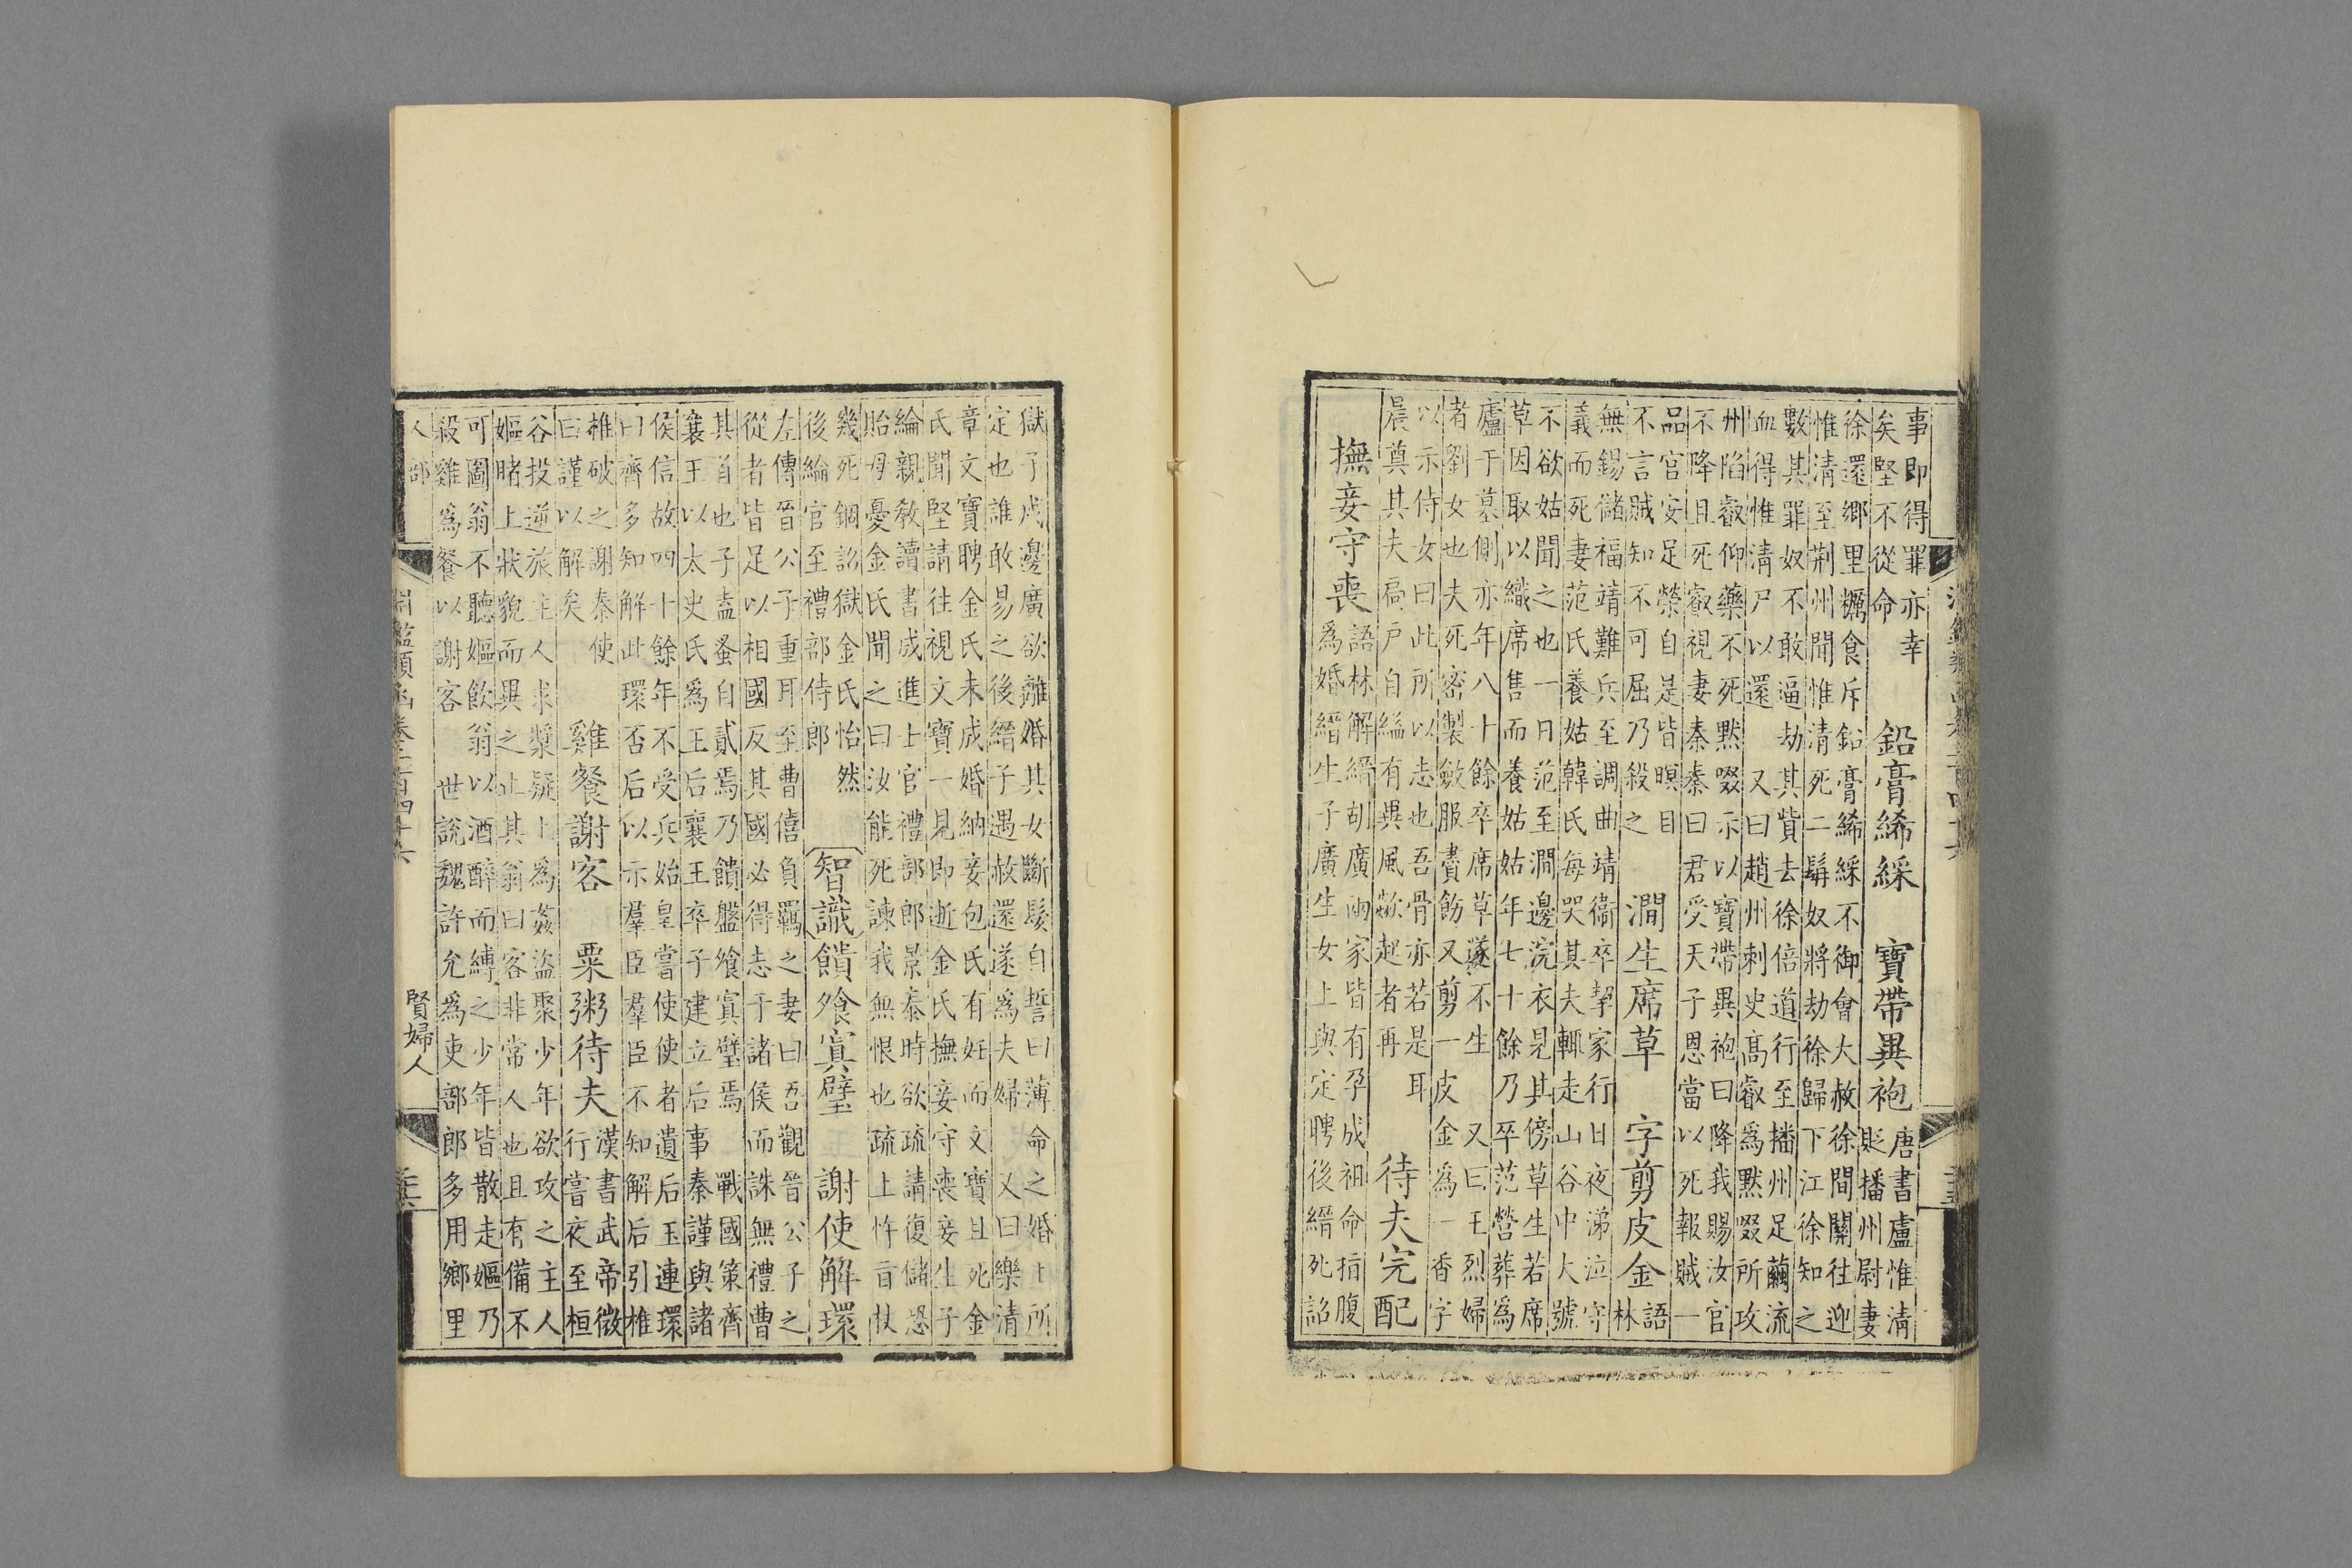 事即得罪亦幸
矣堅不從命
鉛膏絺綵　寶帶異袍
唐書盧惟清
貶播州尉妻
徐還鄉里糲食斥鉛膏絺綵不御會大赦徐間關往迎
惟清至荆州聞惟清死二髯奴將劫徐歸下江徐知之
數其罪奴不敢逼劫其貲去徐倍道行至播州足繭流
血得惟清尸以還　又曰趙州刺史高叡爲黙啜所攻
州陷叡仰藥不死黙啜示以寶帶異袍曰降我賜汝官
不降且死叡視妻秦秦曰君受天子恩當以死報賊一
品官安足榮自是皆瞑目
不言賊知不可屈乃殺之
澗生席草　字剪皮金
語
林
無錫儲福靖難兵至調曲靖衞卒挈家行日夜涕泣守
義而死妻范氏養姑韓氏每哭其夫輒走山谷中大號
不欲姑聞之也一日范至澗邊浣衣見其傍草生若席
草因取以織席售而養姑姑年七十餘乃卒范營葬爲
廬于墓側亦年八十餘卒席草遂不生　又曰王烈婦
者劉女也夫死密製斂服賷飭又剪一皮金爲一香字
以示侍女曰此所以志也吾骨亦若是耳
晨奠其夫扃戸自縊有異風歘起者再
待夫完配
撫妾守喪
語林解縉胡廣兩家皆有孕成祖命指腹
爲婚縉生子廣生女上與定聘後縉死詔
獄子戍邊廣欲離婚其女斷髮自誓曰薄命之婚上所
定也誰敢易之後縉子遇赦還遂爲夫婦　又曰樂清
章文寶聘金氏未成婚納妾包氏有妊而文寶且死金
氏聞堅請往視文寶一見即逝金氏撫妾守喪妾生子
綸親敎讀書成進士官禮部郎景泰時欲疏請復儲恐
貽母憂金氏聞之曰汝能死諫我無恨也疏上忤旨杖
幾死錮詔獄金氏怡然
後綸官至禮部侍郎
智識
饋飧寘璧　謝使解環
左傳晉公子重耳至曹僖負羈之妻曰吾觀晉公子之
從者皆足以相國反其國必得志于諸侯而誅無禮曹
其首也子盍蚤自貳焉乃饋盤飧寘璧焉　戰國策齊
襄王以太史氏爲王后襄王卒子建立后事秦謹與諸
侯信故四十餘年不受兵始皇嘗使使者遺后玉連環
曰齊多知解此環否后以示羣臣羣臣不知解后引椎
椎破之謝秦使
曰謹以解矣
雞餐謝客　粟粥待夫
漢書武帝微
行嘗夜至桓
谷投逆旅主人求漿疑上爲姦盜聚少年欲攻之主人
嫗睹上狀貌而異之止其翁曰客非常人也且有備不
可圖翁不聽嫗飲翁以酒醉而縛之少年皆散走嫗乃
殺雞爲餐以謝客　世說魏許允爲吏部郎多用鄉里
人部　淵鑑類函卷二百四十六　賢婦人